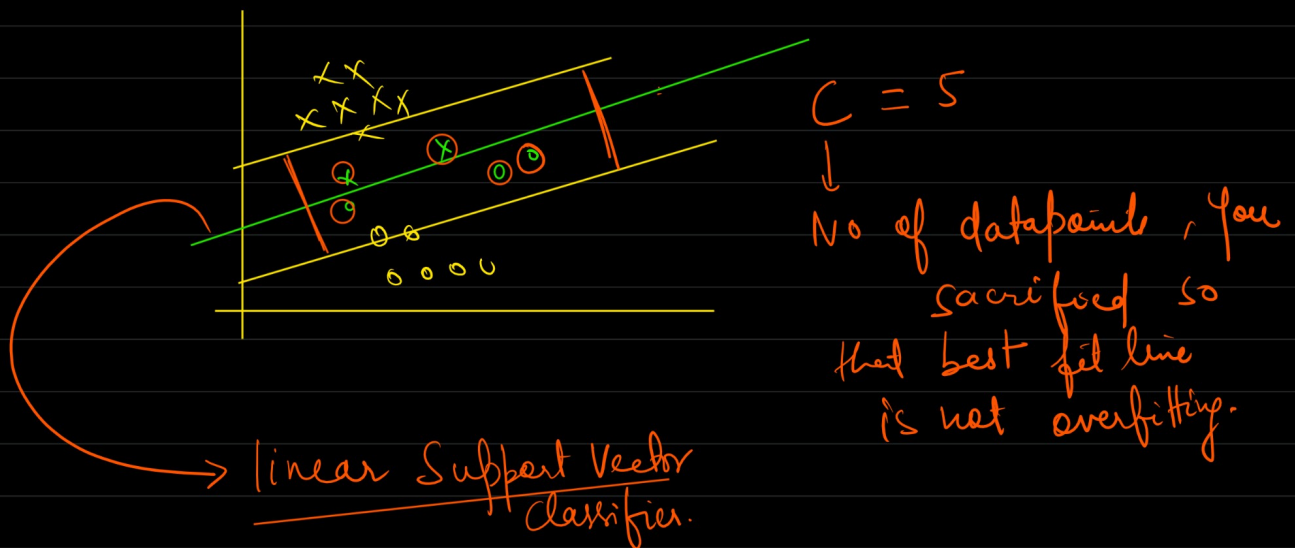 C = 5
No of datapoints, you
sacrificed so
that best fit line
is not overfitting.
linear Support Vector
Classifier.